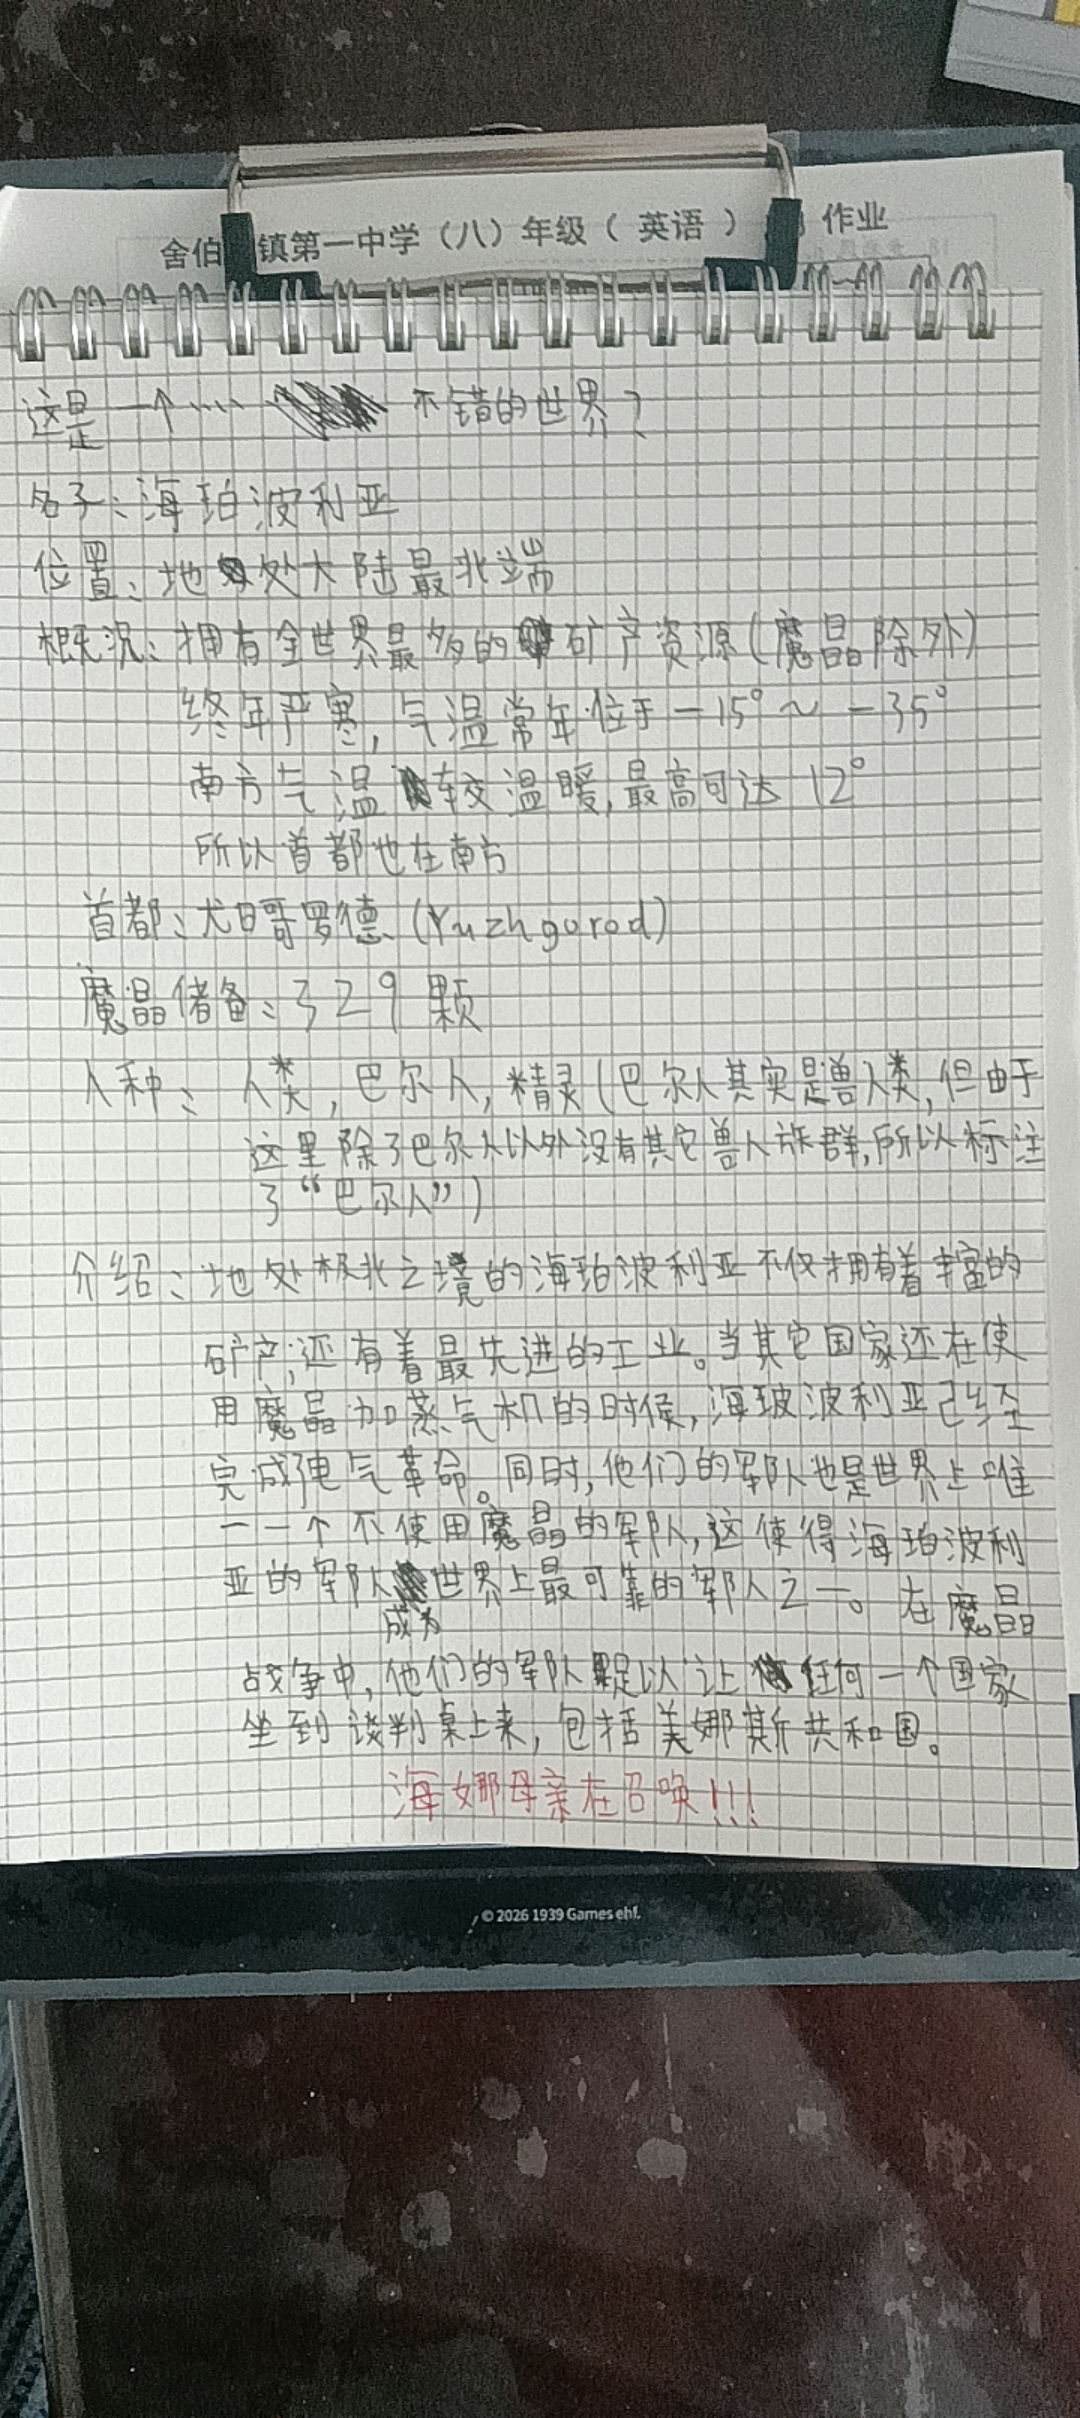 舍伯 镇第一中学（八）年级（ 英语 ） 作业
这是一个…… 不错的世界？
名子：海珀波利亚
位置：地处大陆最北端
概况：拥有全世界最多的矿产资源（魔晶除外）
终年严寒，气温常年位于-15°～-35°
南方气温较温暖，最高可达12°
所以首都也在南方
首都：尤日哥罗德（Yuzhgorod）
魔晶储备：329颗
人种：人类，巴尔人，精灵（巴尔人其实是兽人类，但由于
这里除了巴尔人以外没有其它兽人族群，所以标注
了“巴尔人”）
介绍：地处极北之境的海珀波利亚不仅拥有着丰富的
矿产，还有着最先进的工业。当其它国家还在使
用魔晶加蒸气机的时候，海玻波利亚已经
完成电气革命。同时，他们的军队也是世界上唯
一一个不使用魔晶的军队，这使得海珀波利
亚的军队成为世界上最可靠的军队之一。在魔晶
战争中，他们的军队足以让任何一个国家
坐到谈判桌上来，包括美娜斯共和国。
海娜母亲在召唤!!!
© 2026 1939 Games ehf.